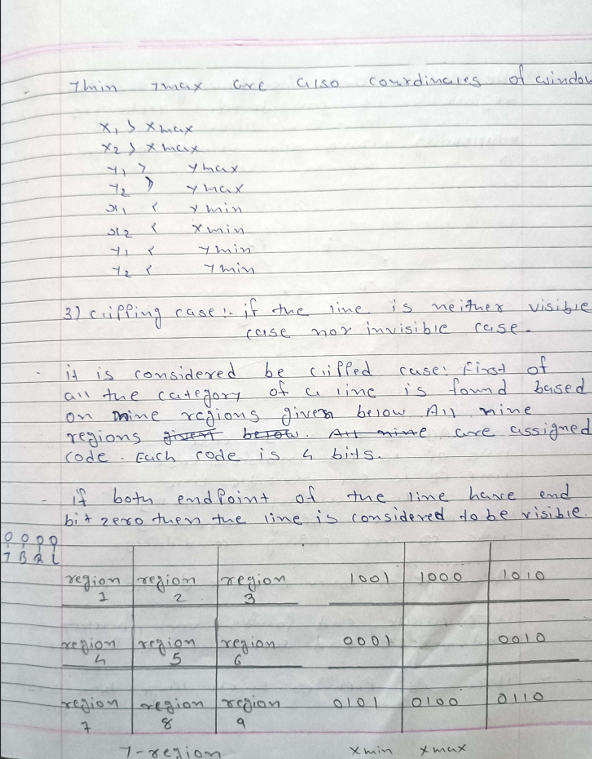 ymin ymax are also courdinates of window
x1 > xmax
x2 > xmax
y1 > ymax
y2 > ymax
x1 < xmin
x2 < xmin
y1 < ymin
y2 < ymin
3) clipping case :- if the line is neither visible
case nor invisible case.
- it is considered be clipped case: First of
all the category of a line is found based
on nine regions given below All nine
regions given below. All nine are assigned
code. Each code is 4 bits.
- if both endpoint of the line have end
bit zero then the line is considered to be visible.
0 0 0 0
T B R L
region 1 region 2 region 3 1001 1000 1010
region 4 region 5 region 6 0001 0010
region 7 region 8 region 9 0101 0100 0110
7-region xmin xmax